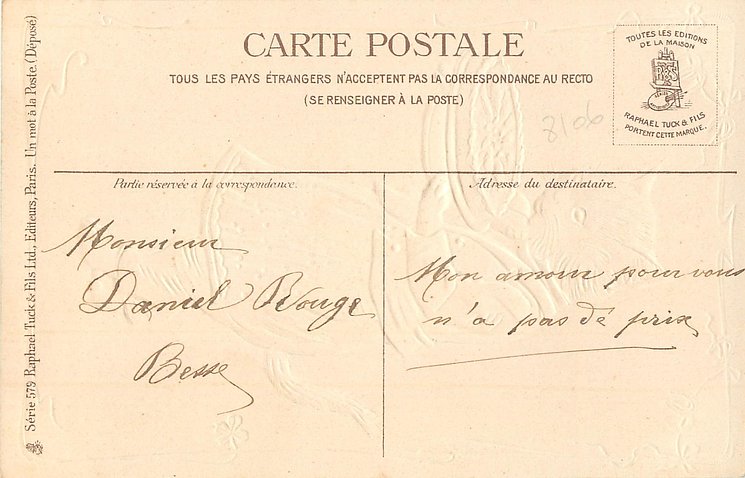 CARTE POSTALE
TOUS LES PAYS ÉTRANGERS N'ACCEPTENT PAS LA CORRESPONDANCE AU RECTO
(SE RENSEIGNER À LA POSTE)
TOUTES LES EDITIONS
DE LA MAISON
RAPHAEL TUCK & FILS
PORTENT CETTE MARQUE.
8106
Partie réservée à la correspondance.
Adresse du destinataire.
Monsieur
Daniel Rouge
Besse
Mon amour pour vous
n'a pas de prix
Série 579 Raphael Tuck & Fils Ltd., Editeurs, Paris. Un mot à la Poste. (Déposé)